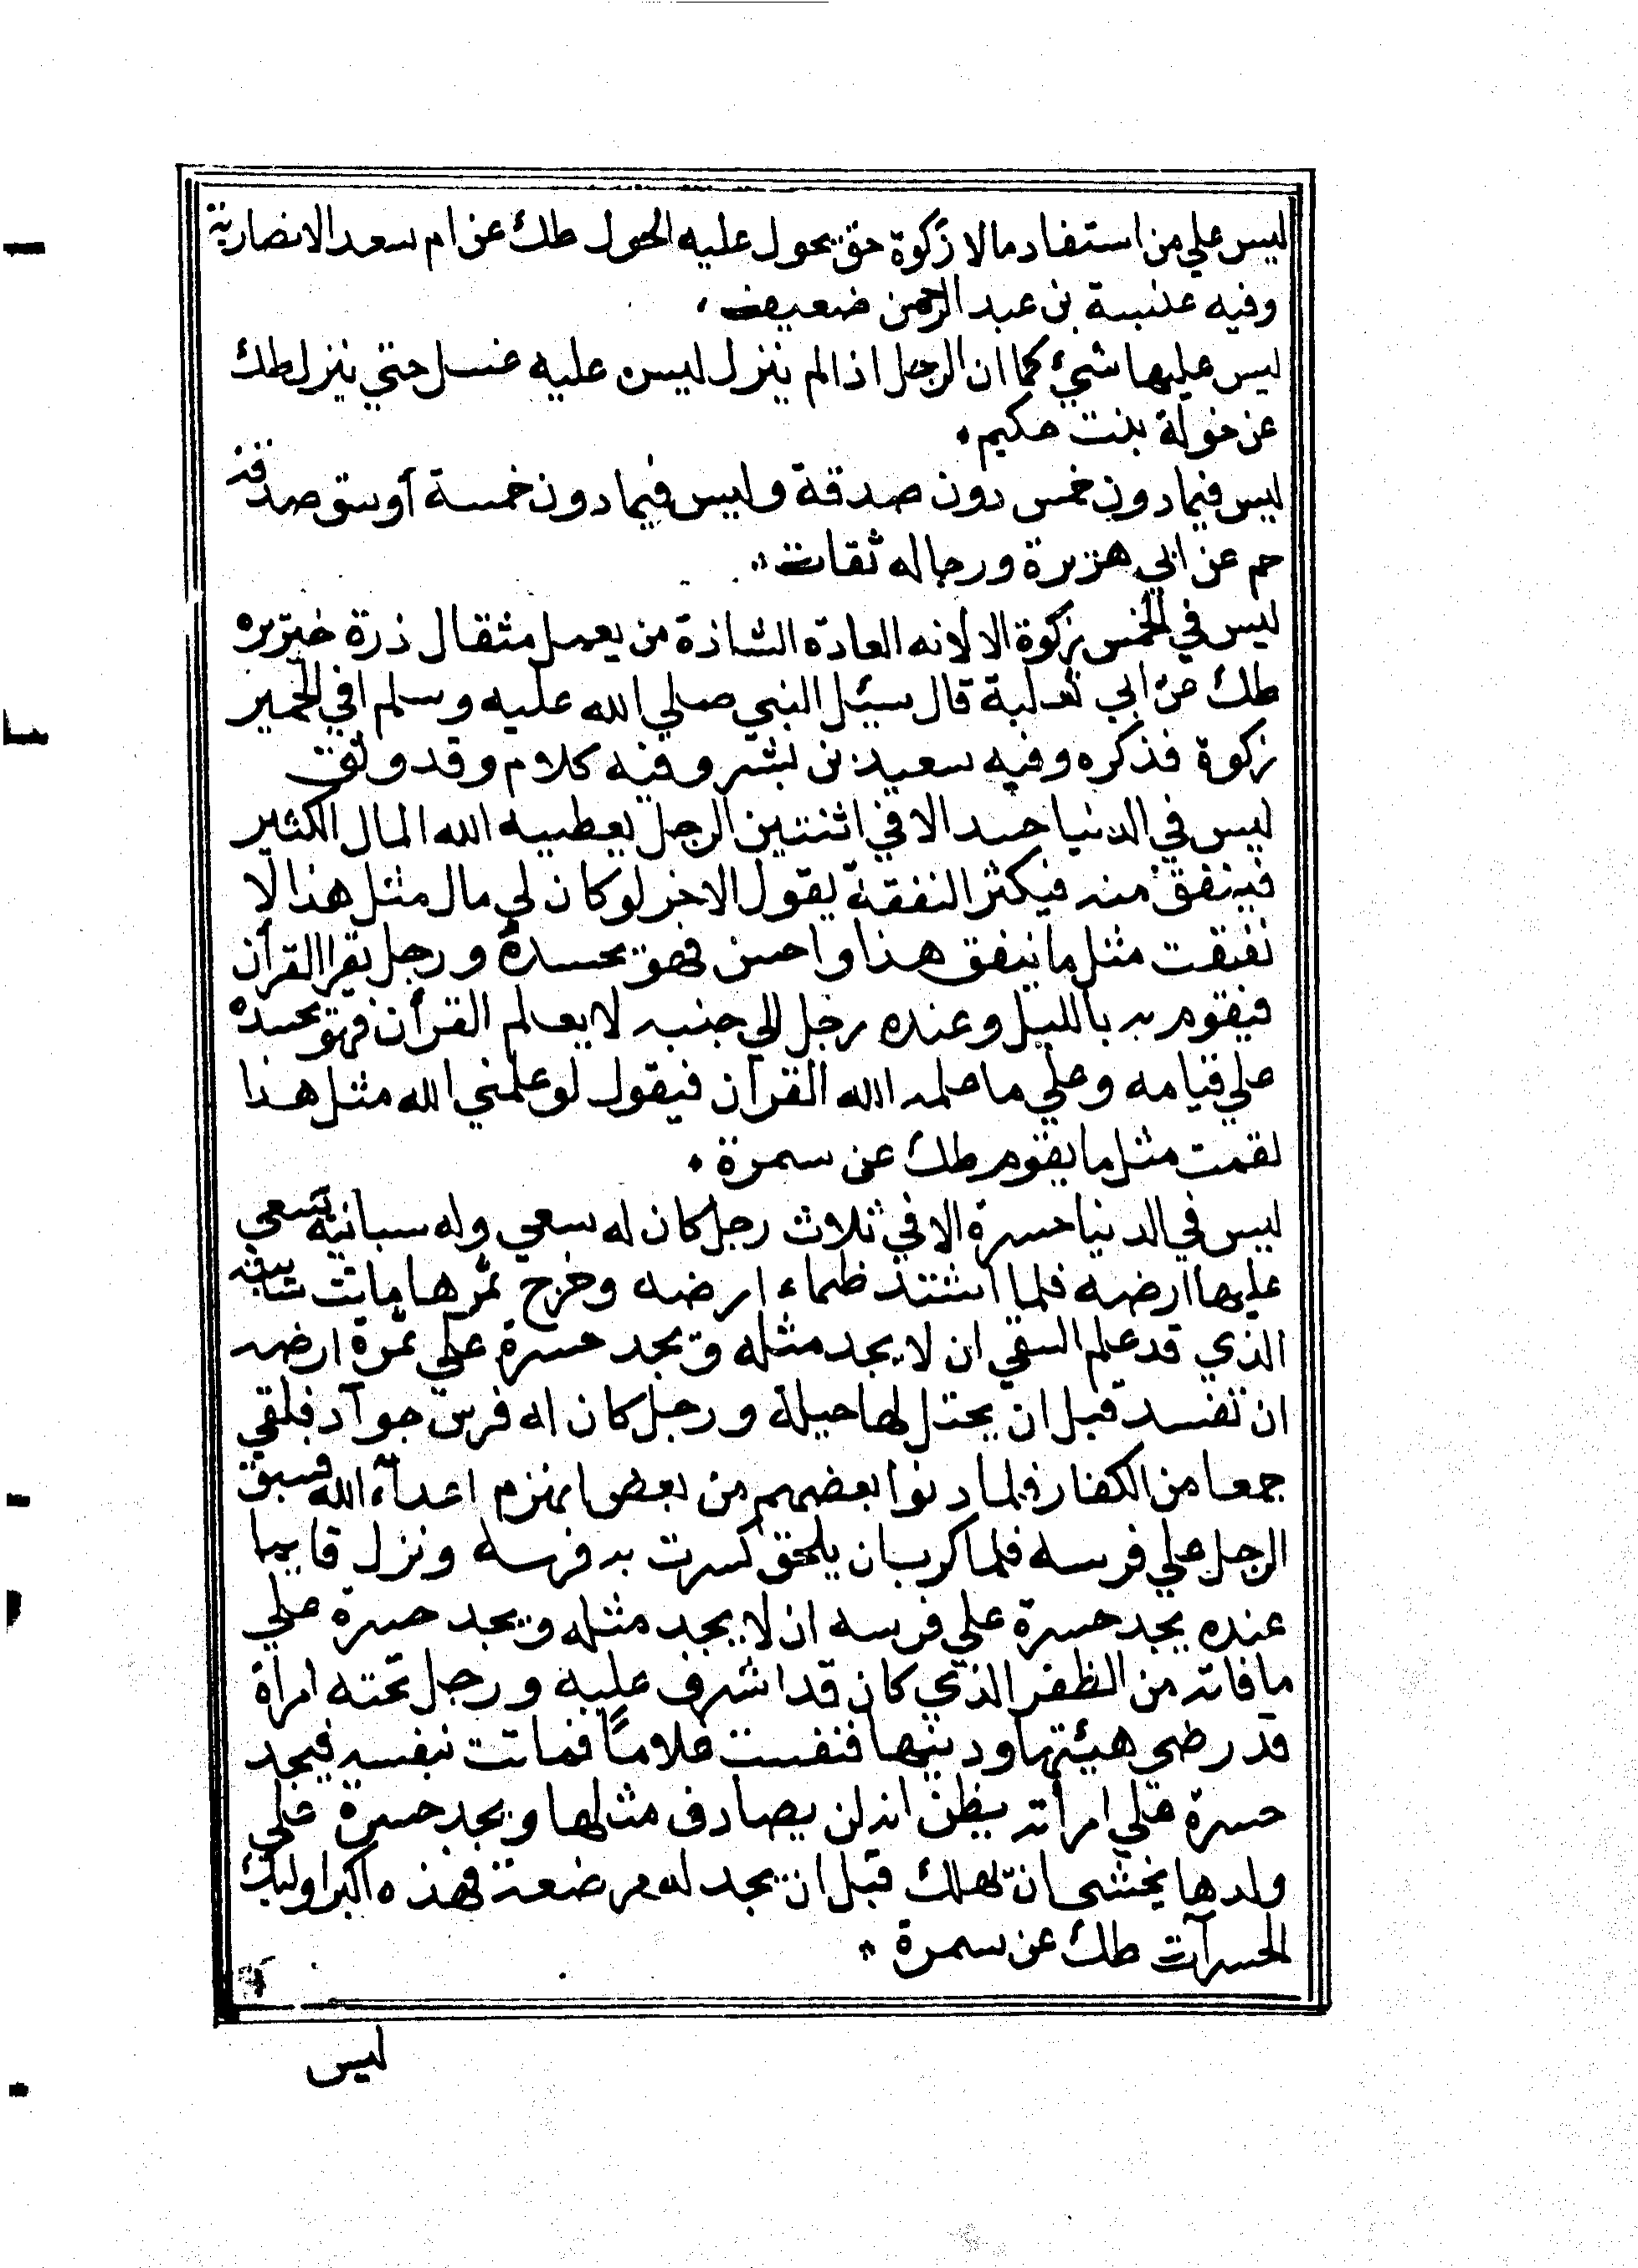 ليس علي من استفاد مالا زكوة حتي يحول عليه الحول طك عن ام سعد الانصارية
وفيه عنبسة بن عبد الرحمن ضعيف
ليس عليها شيئ كما ان الرجل اذا لم ينزل ليس عليه غسل حتي ينزل طك
عن خولة بنت حكيم
ليس فيما دون خمس دون صدقة وليس فيما دون خمسة أوسق صدقة
حم عن ابي هريرة ورجاله ثقات
ليس في زكوة الا لانه العادة الشاذة من يعمل مثقال ذرة خيريره
طك عن ابي ثعلبة قال سئل النبي صلي الله عليه وسلم افي الحمير
زكوة فذكره وفيه سعيد بن بشر وفيه كلام وقد وثق
ليس في الدنيا حسد الا في اثنتين الرجل يعطيه الله المال الكثير
فينفق منه فيكثر النفقة يقول الاخر لو كان لي مال مثل هذا لا
نفقت مثل ما ينفق هذا واحسن فهو يحسده ورجل يقرا القرآن
فيقوم به بالليل وعنده رجل الي جنبه لا يعلم القرآن فهو يحسده
علي قيامه وعلي ما علمه الله القرآن فيقول لو علمني الله مثل هذا
لقمت مثل ما يقوم طك عن سمرة
ليس في الدنيا حسرة الا في ثلاث رجل كان له سعي وله سبانية تسعي
عليها ارضه فلما اشتد ظماء ارضه وخرج ثمرها ماتت
الذي قد علم السقي ان لا يجد مثله ويجد حسرة علي ثمرة ارضه
ان تفسد قبل ان يحتل لها حيلة ورجل كان له فرس جوآد فلقي
جمعا من الكفار فلما دنوا بعضهم من بعض انهزم اعدآء الله فسبق
الرجل علي فرسه فلما كرب ان يلحق كسرت به فرسه ونزل قايما
عنده يجد حسرة علي فرسه ان لا يجد مثله ويجد حسرة علي
ما فاته من الظفر الذي كان قد اشرف عليه ورجل تحته امرأة
قد رضي هيئتها ودينها فنفست غلاماً فماتت بنفسه فيجد
حسرة علي امرأته يظن انه لن يصادف مثلها ويجد حسرة علي
ولدها يخشى ان تهلك قبل ان يجد له مرضعة فهذه اكبر اوليك
الحسرآت طك عن سمرة
ليس